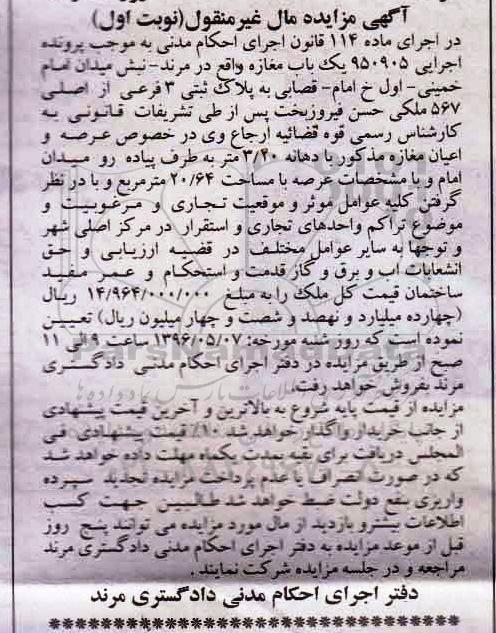 آگهی مزایده مال غیرمنقول(نوبت اول)
در اجرای ماده ۱۱۴ قانون اجرای احکام مدنی به موجب پرونده
اجرایی ۹۵۰۹۰۵ یک باب مغازه واقع در مرند- نبش میدان امام
خمینی- اول خ امام- قصابی به پلاک ثبتی ۳ فرعی از اصلی
۵۶۷ ملکی حسن فیروزبخت پس از طی تشریفات قانونی به
کارشناس رسمی قوه قضائیه ارجاع وی در خصوص عرصه و
اعیان مغازه مذکور با دهانه ۳/۲۰ متر به طرف پیاده رو میدان
امام و با مشخصات عرصه با مساحت ۲۰/۶۴ مترمربع و با در نظر
گرفتن کلیه عوامل موثر و موقعیت تجاری و مرغوبیت و
موضوع تراکم واحدهای تجاری و استقرار در مرکز اصلی شهر
و توجها به سایر عوامل مختلف در قضیه ارزیابی و حق
انشعابات اب و برق و گاز قدمت و استحکام و عمر مفید
ساختمان قیمت کل ملک را به مبلغ ۱۴/۹۶۴/۰۰۰/۰۰۰ ریال
(چهارده میلیارد و نهصد و شصت و چهار میلیون ریال) تعیین
نموده است که روز شنبه مورخه: ۱۳۹۶/۰۵/۰۷ ساعت ۹ الی ۱۱
صبح از طریق مزایده در دفتر اجرای احکام مدنی دادگستری
مرند بفروش خواهد رفت.
مزایده از قیمت پایه شروع به بالاترین و آخرین قیمت پیشنهادی
از جانب خریدار واگذار خواهد شد ۱۰٪ قیمت پیشنهادی فی
المجلس دریافت برای بقیه بمدت یکماه مهلت داده خواهد شد
که در صورت انصراف یا عدم پرداخت مزایده تجدید سپرده
واریزی بنفع دولت ضبط خواهد شد طالبین جهت کسب
اطلاعات بیشترو بازدید از مال مورد مزایده می توانند پنج روز
قبل از موعد مزایده به دفتر اجرای احکام مدنی دادگستری مرند
مراجعه و در جلسه مزایده شرکت نمایند.
دفتر اجرای احکام مدنی دادگستری مرند